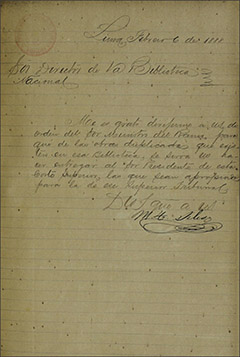 Lima, Febrero 6 de 1888
Sor Director de la Biblioteca
Nacional
Me es grato dirigirme a US. de
orden del Sor Ministro del Ramo, para
que de las obras duplicadas que exis-
ten en esa Biblioteca, se sirva US. ha-
cer entregar al Sor Presidente de esta
Corte Superior, las que sean apropiadas
para la de ese Superior Tribunal
Dios gue a US.